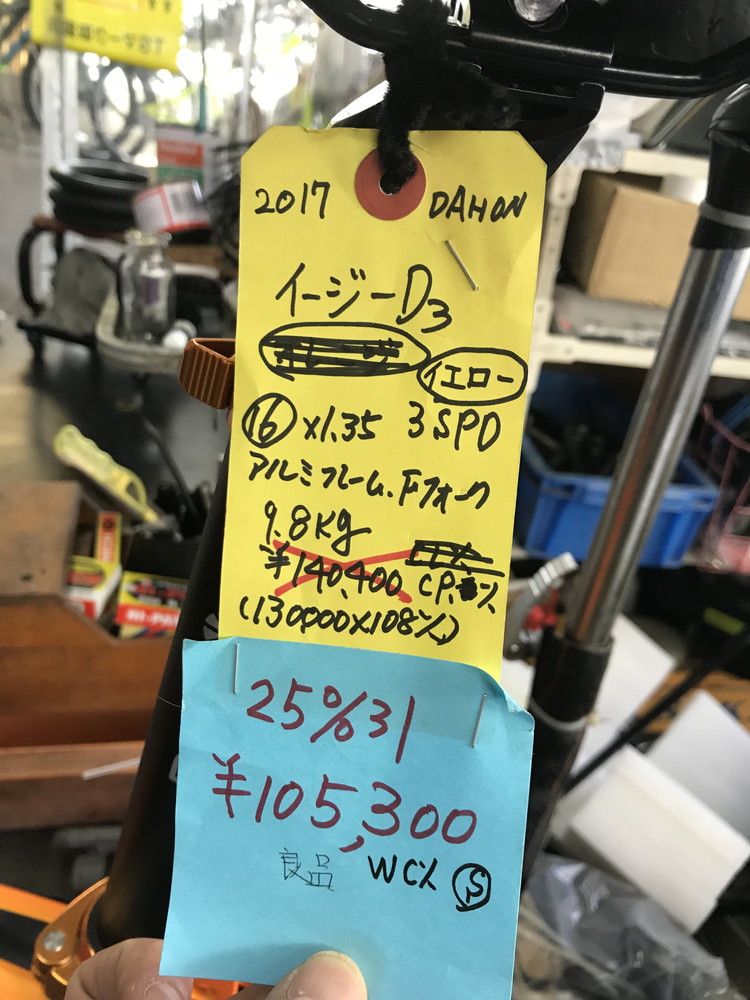 2017 DAHON
イージーD3
イエロー
16 x1.35 3SPD
アルミフレーム、Fフォーク
9.8Kg
¥140,400
(130000x108%)
25%引
¥105,300
良品 WC% S